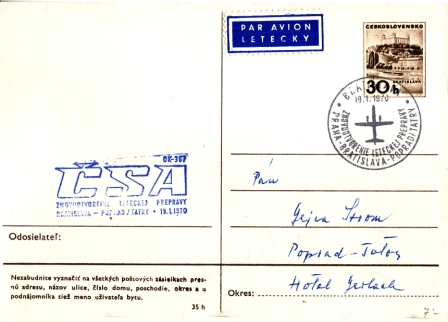 PAR AVION
LETECKY
ČESKOSLOVENSKO
BRATISLAVA
30 h
19.1.1970
ZNOVUOTVORENIE LETECKEJ PREPRAVY
PRAHA-BRATISLAVA-POPRAD/TATRY
OK-307
ČSA
ZNOVUOTVORENIE LETECKEJ PREPRAVY
BRATISLAVA - POPRAD/TATRY • 19.1.1970
Pán
Gejza
Poprad-Tatry
Hotel Gerlach
Odosielateľ:
Nezabudnite vyznačiť na všetkých poštových zásielkach pres-
nú adresu, názov ulice, číslo domu, poschodie, okres a u
podnájomníka tiež meno užívateľa bytu.
35 h
Okres:
7.-